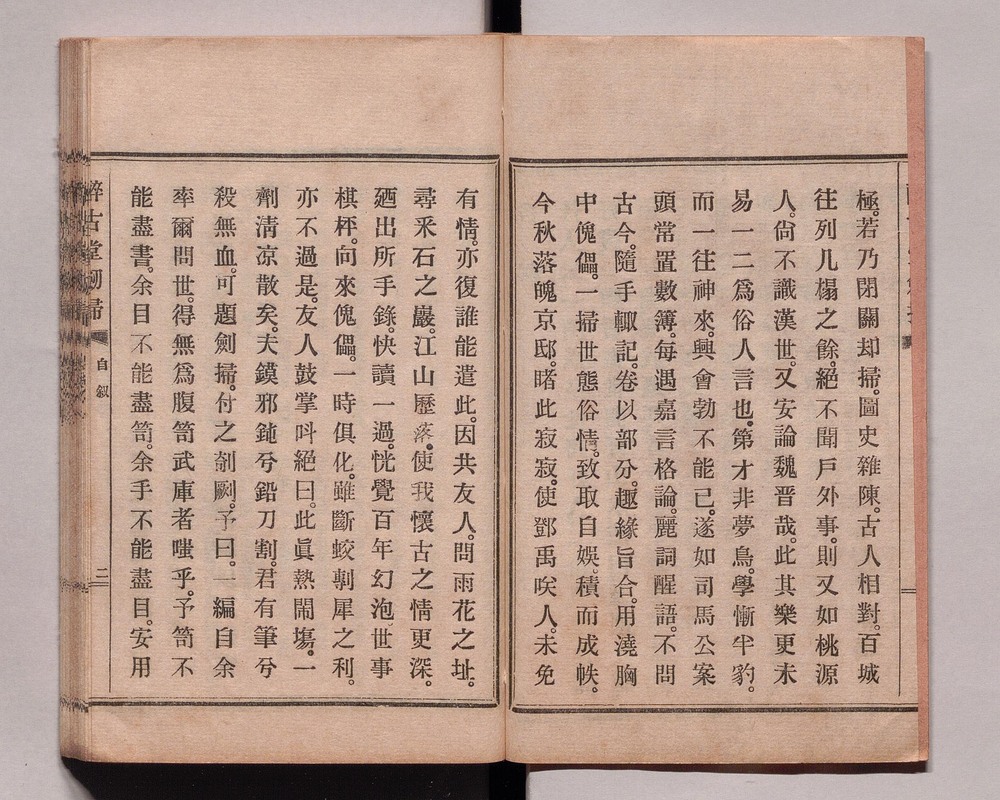 極。若乃閉關却掃。圖史雜陳。古人相對。百城
往列几榻之餘。絕不聞戶外事。則又如桃源
人。尙不識漢世。又安論魏晋哉。此其樂更未
易一二爲俗人言也。第才非夢鳥。學慚半豹。
而一往神來。興會勃不能已。遂如司馬公案
頭常置數簿。每遇嘉言格論。麗詞醒語。不問
古今。隨手輙記。卷以部分。趣緣旨合。用澆胸
中傀儡。一掃世態俗情。致取自娛。積而成帙。
今秋落魄京邸。睹此寂寂。使鄧禹咲人。未免
有情。亦復誰能遣此。因共友人。問雨花之址。
尋釆石之巖。江山歷落。使我懷古之情更深。
廼出所手錄。快讀一過。恍覺百年幻泡。世事
棋枰。向來傀儡。一時俱化。雖斷蛟剸犀之利。
亦不過是。友人鼓掌呌絕曰。此眞熱閙塲。一
劑淸凉散矣。夫鏌邪鈍兮鉛刀割。君有筆兮
殺無血。可題劍掃。付之剞劂。予曰。一編自余
率爾問世。得無爲腹笥武庫者嗤乎。予笥不
能盡書。余目不能盡笥。余手不能盡目。安用
醉古堂劍掃
自叙
二